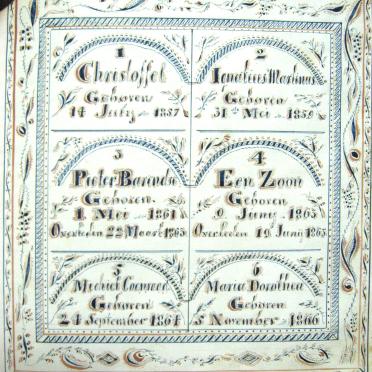 1
Christoffel
Geboren
14 July 1857
2
Ignatius Martinus
Geboren
31 Mei 1859
3
Pieter Barends
Geboren
1 Mei 1861
Overleden 22 Maart 1863
4
Een Zoon
Geboren
9 Juny 1863
Overleden 19 Juny 1863
5
Michiel
Geboren
24 September 1864
6
Maria Dorothea
Geboren
5 November 1866